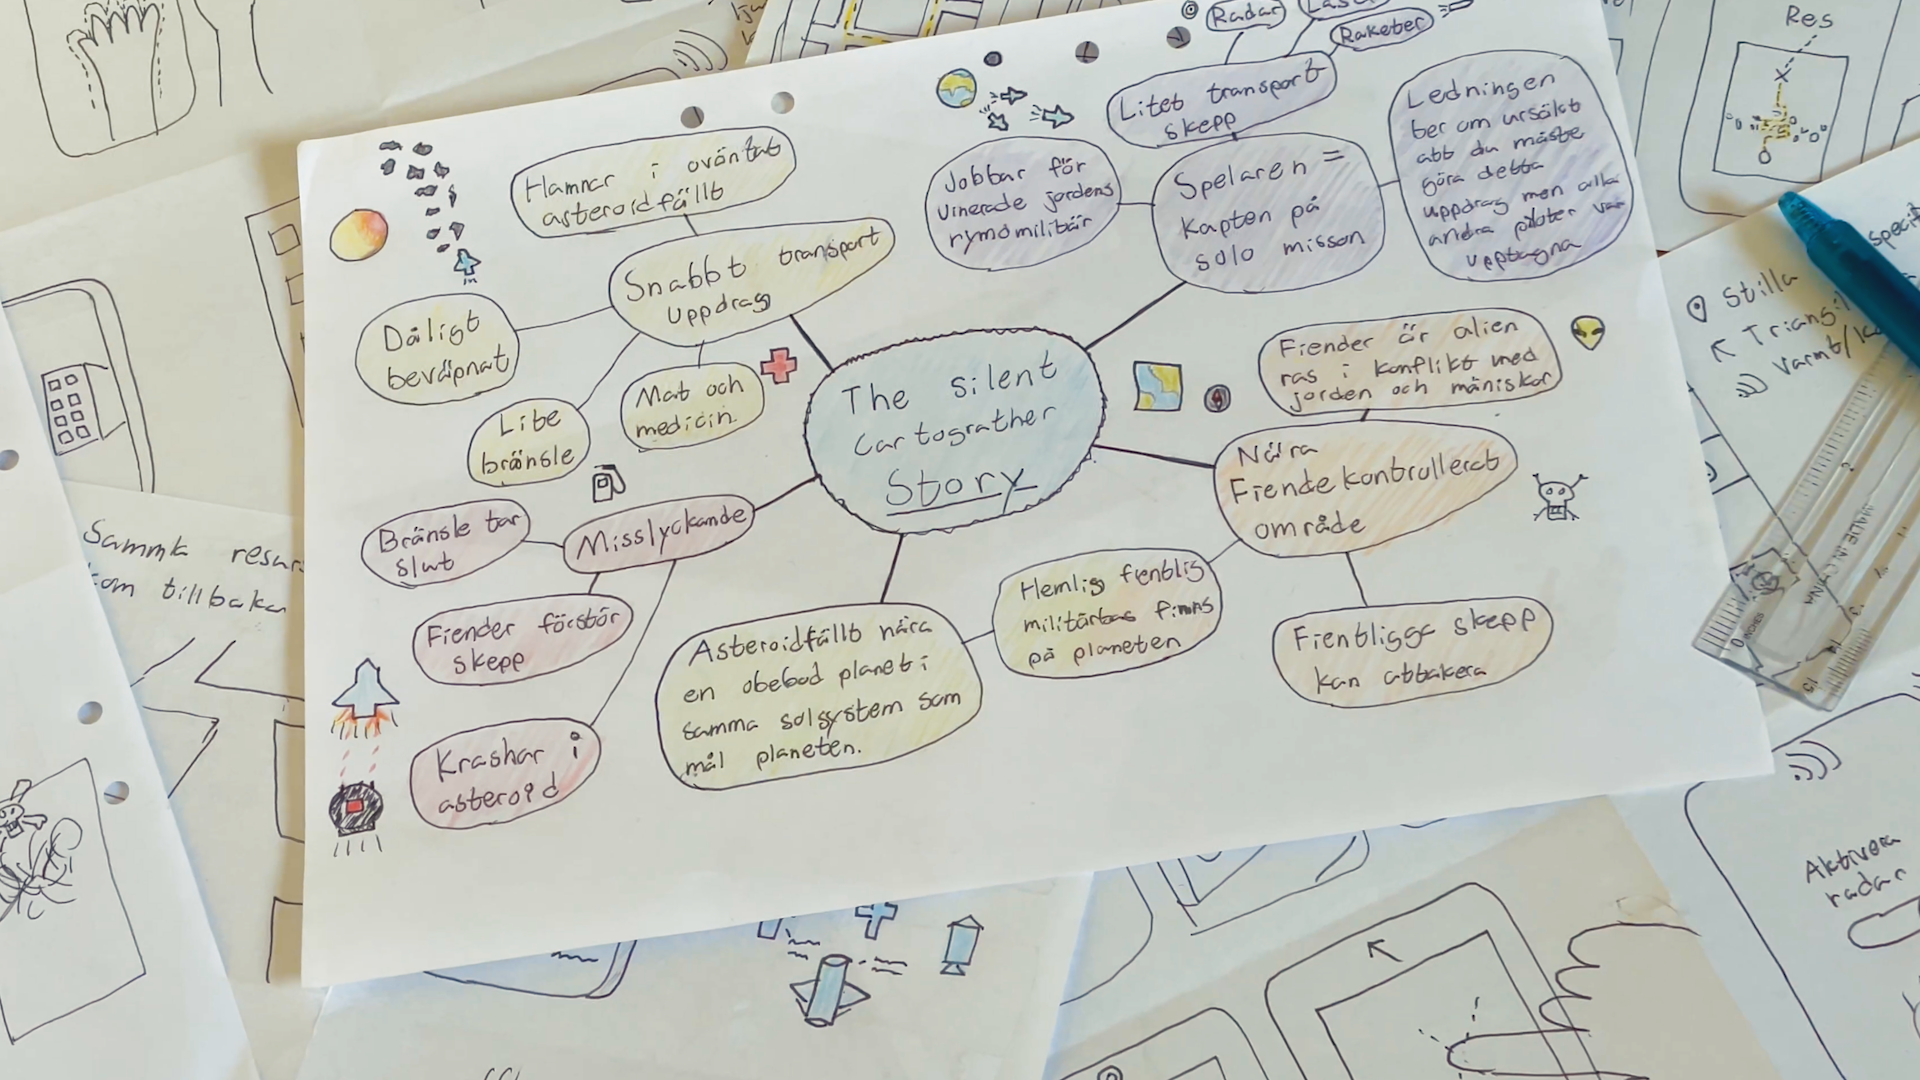 Res
Radar
Raketer
Litet transport
skepp
Ledningen
ber om ursäkt
att du måste
göra detta
uppdrag men alla
andra piloter var
upptagna
Spelaren =
Kapten på
solo misson
Jobbar för
Vinerade jordens
rymdmilitär
Hamnar i oväntat
asteroidfällt
Snabbt transport
uppdrag
Dåligt
beväpnat
Lite
bränsle
Mat och
medicin.
The silent
Cartograther
Story
Fiender är alien
ras i konflikt med
jorden och mäniskor
Nära
Fiendekontrollerat
område
Fientligga skepp
kan attakera
Hemlig fientlig
militärbas finns
på planeten
Asteroidfällt nära
en obebod planet i
samma solsystem som
mål planeten.
Misslyckande
Bränsle tar
slut
Fiender förstör
skepp
Krashar i
asteroid
Samla resurs
kom tillbaka
Stilla
Varmt/
MADE IN CHINA
INCHES
0
15
Aktivera
radar